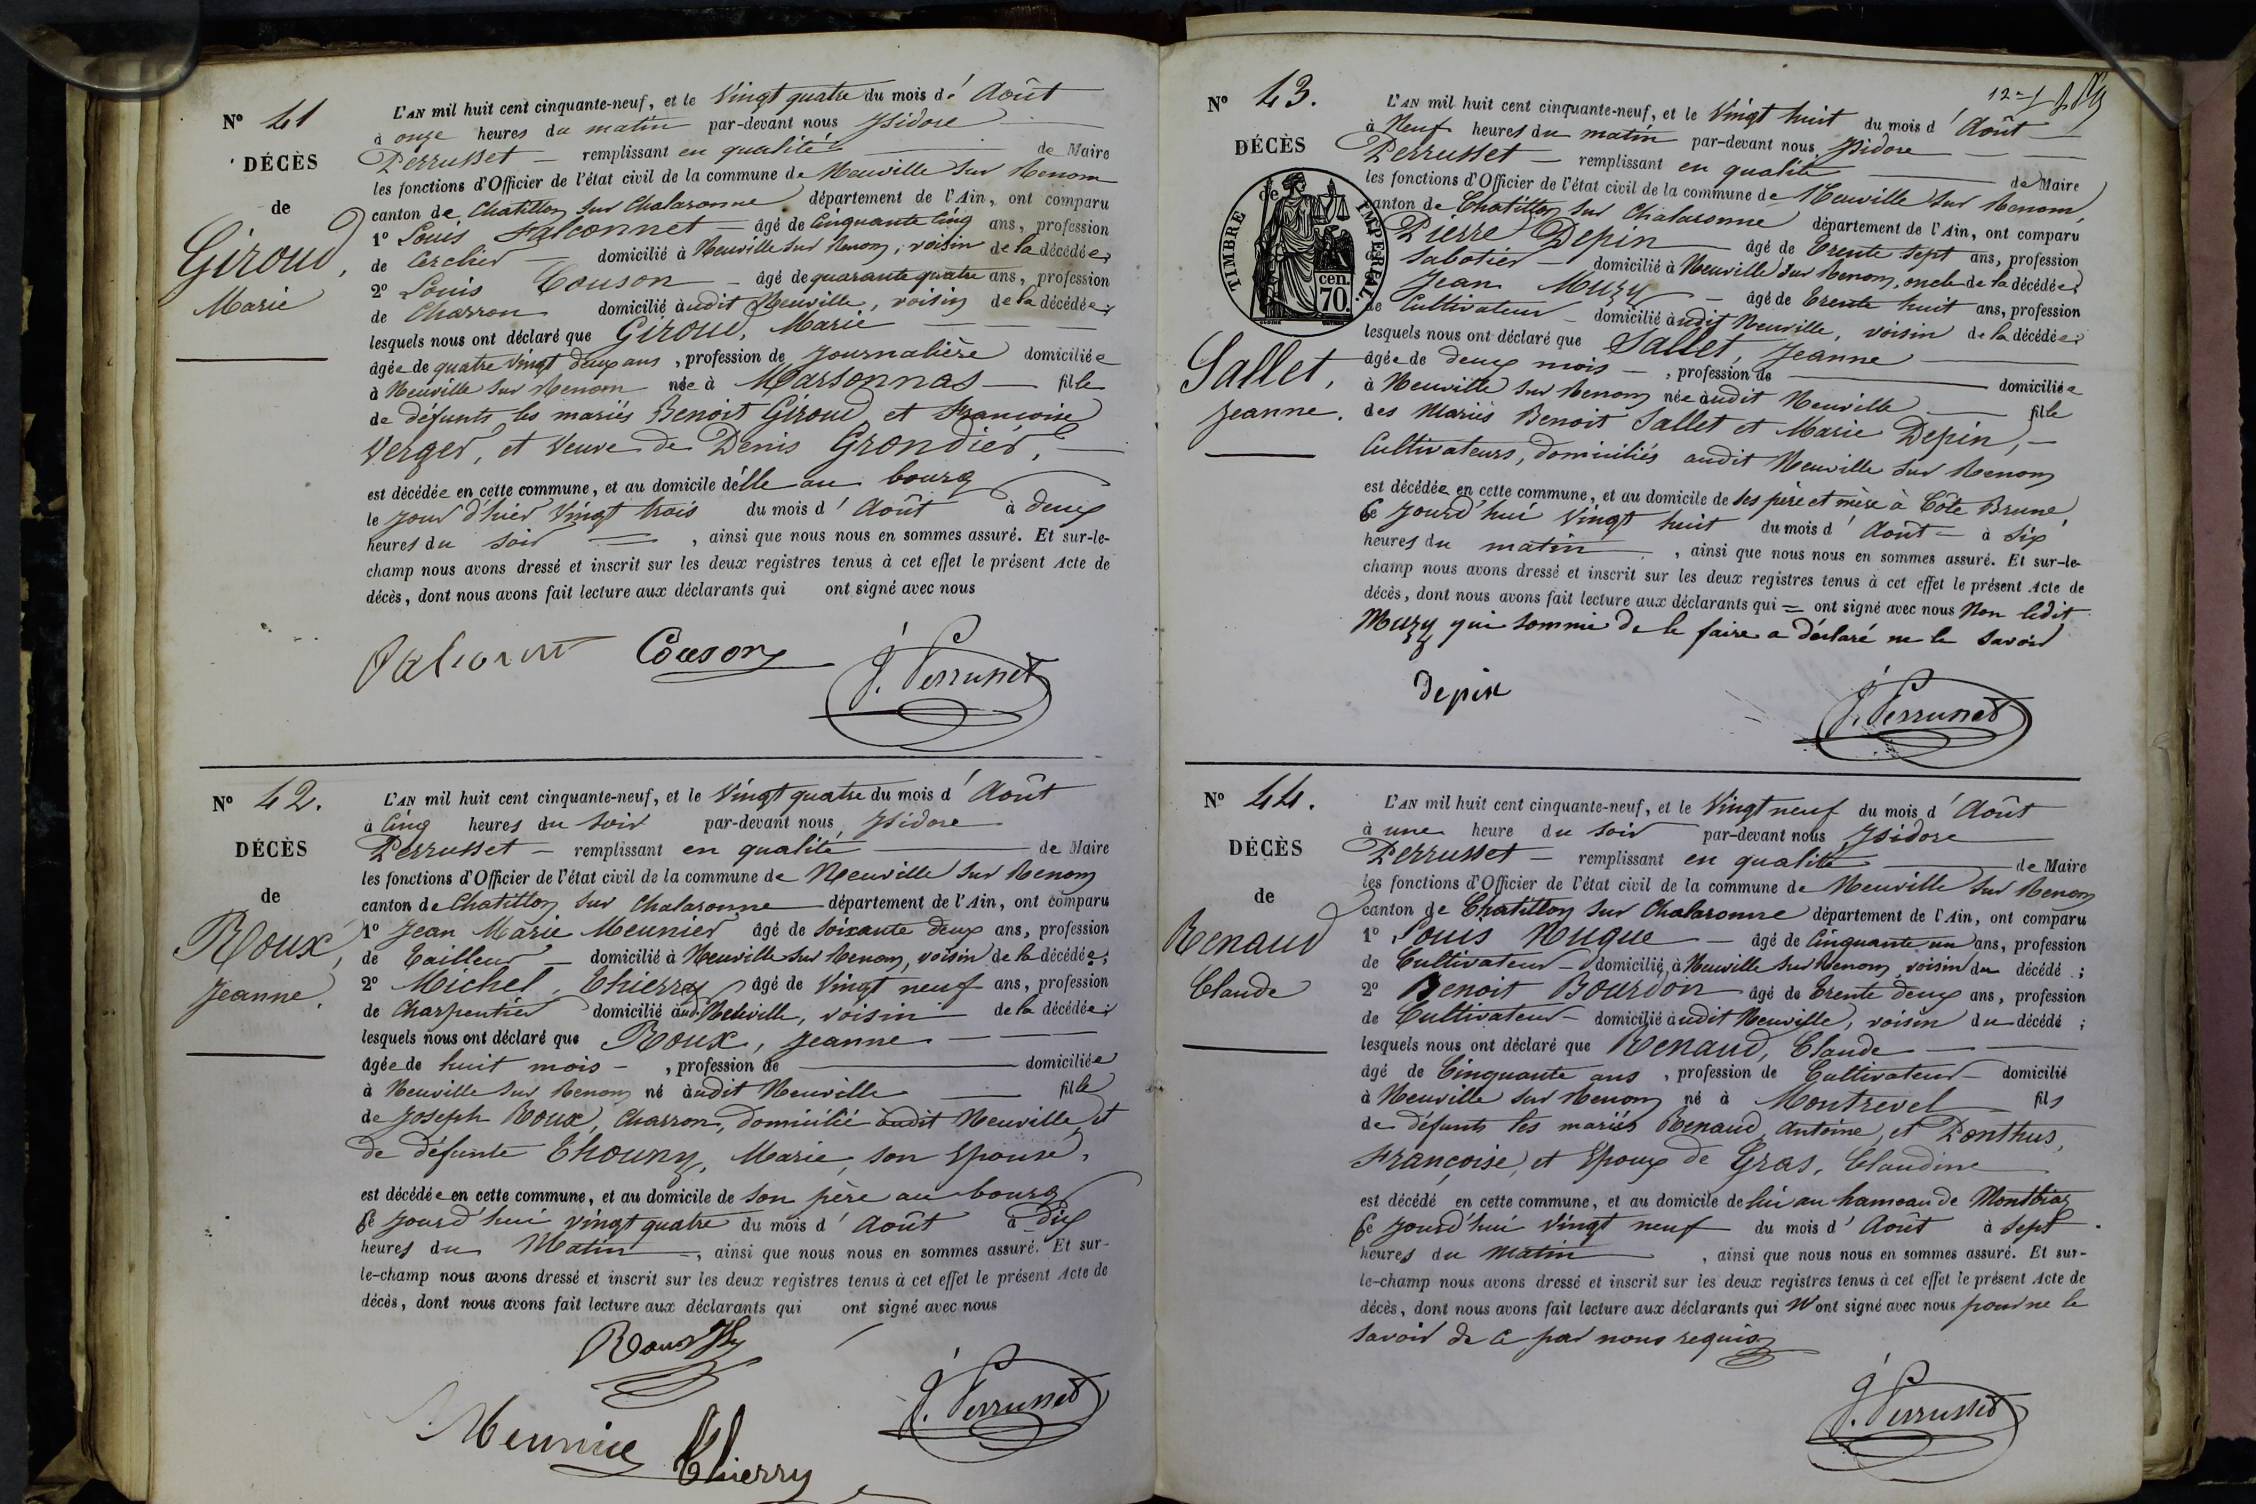 N° 41
DÉCÈS
de
Giroud,
Marie
L'AN mil huit cent cinquante-neuf, et le Vingt quatre du mois d' Août
à onze heures du matin par-devant nous Isidore
Perrusset remplissant en qualité de Maire
les fonctions d'Officier de l'état civil de la commune de Neuville sur Renom
canton de Chatillon sur Chalaronne département de l'Ain, ont comparu
1° Louis Falconnet âgé de Cinquante Cinq ans, profession
de Cerclier domicilié à Neuville sur Renom, voisin de la décédée;
2° Louis Couson âgé de quarante quatre ans, profession
de Charron domicilié audit Neuville, voisin de la décédée;
lesquels nous ont déclaré que Giroud, Marie
âgée de quatre vingt deux ans, profession de Journalière domiciliée
à Neuville sur Renom née à Marsonnas fille
de défunts les mariés Benoit Giroud et Françoise
Verger, et Veuve de Denis Grondier,
est décédée en cette commune, et au domicile d'elle au bourg
le jour d'hier Vingt trois du mois d' Août à deux
heures du soir, ainsi que nous nous en sommes assuré. Et sur-le-
champ nous avons dressé et inscrit sur les deux registres tenus à cet effet le présent Acte de
décès, dont nous avons fait lecture aux déclarants qui ont signé avec nous
Falconnet Couson J. Perrusset
N° 42.
DÉCÈS
de
Roux,
Jeanne.
L'AN mil huit cent cinquante-neuf, et le Vingt quatre du mois d' Août
à Cinq heures du soir par-devant nous Isidore
Perrusset – remplissant en qualité de Maire
les fonctions d'Officier de l'état civil de la commune de Neuville sur Renom
canton de Chatillon sur Chalaronne département de l'Ain, ont comparu
1° Jean Marie Meunier âgé de soixante deux ans, profession
de Tailleur – domicilié à Neuville sur Renom, voisin de la décédée;
2° Michel Thierry âgé de Vingt neuf ans, profession
de Charpentier domicilié aud. Neuville, voisin de la décédée;
lesquels nous ont déclaré que Roux, Jeanne
âgée de huit mois –, profession de domiciliée
à Neuville sur Renom né audit Neuville fille
de Joseph Roux, Charron, domicilié audit Neuville et
de défunte Thouny, Marie, son Epouse,
est décédée en cette commune, et au domicile de son père au bourg
Ce jourd'hui vingt quatre du mois d' Août à Dix
heures du Matin –, ainsi que nous nous en sommes assuré. Et sur-
le-champ nous avons dressé et inscrit sur les deux registres tenus à cet effet le présent Acte de
décès, dont nous avons fait lecture aux déclarants qui ont signé avec nous
Roux J. Perrusset
Meunier Thierry
12
N° 43.
DÉCÈS
de
TIMBRE IMPÉRIAL.
cen.
70.
Sallet,
Jeanne.
L'AN mil huit cent cinquante-neuf, et le Vingt huit du mois d' Août
à Neuf heures du matin par-devant nous Isidore
Perrusset – remplissant en qualité de Maire
les fonctions d'Officier de l'état civil de la commune de Neuville sur Renom,
canton de Chatillon sur Chalaronne département de l'Ain, ont comparu
Pierre Depin âgé de Trente sept ans, profession
de Sabotier – domicilié à Neuville sur Renom, oncle de la décédée;
Jean Muzy – âgé de Trente huit ans, profession
de Cultivateur – domicilié audit Neuville, voisin de la décédée;
lesquels nous ont déclaré que Sallet, Jeanne
âgée de deux mois –, profession de domiciliée
à Neuville sur Renom née audit Neuville fille
des Mariés Benoit Sallet et Marie Depin, –
Cultivateurs, domiciliés audit Neuville sur Renom
est décédée en cette commune, et au domicile de ses père et mère à Côte Brune,
Ce jourd'hui Vingt huit du mois d' Août – à Six
heures du matin, ainsi que nous nous en sommes assuré. Et sur-le-
champ nous avons dressé et inscrit sur les deux registres tenus à cet effet le présent Acte de
décès, dont nous avons fait lecture aux déclarants qui = ont signé avec nous Non ledit
Muzy qui sommé de le faire a déclaré ne le savoir
Depin J. Perrusset
N° 44.
DÉCÈS
de
Renaud
Claude
L'AN mil huit cent cinquante-neuf, et le Vingt neuf du mois d' Août
à une heure du soir par-devant nous Isidore
Perrusset – remplissant en qualité de Maire
les fonctions d'Officier de l'état civil de la commune de Neuville sur Renom
canton de Chatillon sur Chalaronne département de l'Ain, ont comparu
1° Louis Nugue – âgé de Cinquante un ans, profession
de Cultivateur – domicilié à Neuville sur Renom, voisin du décédé;
2° Benoit Bourdon âgé de Trente deux ans, profession
de Cultivateur – domicilié audit Neuville, voisin du décédé;
lesquels nous ont déclaré que Renaud, Claude
âgé de Cinquante ans, profession de Cultivateur – domicilié
à Neuville sur Renom né à Montrevel fils
de défunts les mariés Renaud, Antoine, et Ponthus,
Françoise, et Epoux de Gras, Claudine
est décédé en cette commune, et au domicile de lui au hameau de Montbiaz
Ce jourd'hui Vingt neuf du mois d' Août à Sept
heures du matin, ainsi que nous nous en sommes assuré. Et sur-
le-champ nous avons dressé et inscrit sur les deux registres tenus à cet effet le présent Acte de
décès, dont nous avons fait lecture aux déclarants qui N'ont signé avec nous pour ne le
savoir de ce par nous requis
J. Perrusset